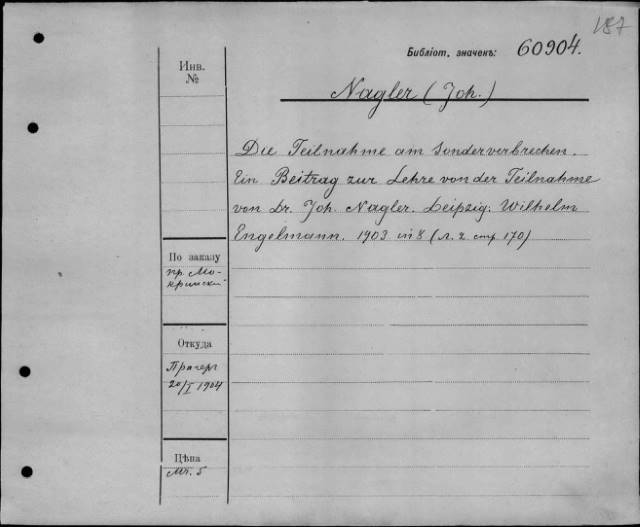 187
Библіот. значекъ: 60904.
Инв.
№
Nagler (Joh.)
Die Teilnahme am Sonderverbrechen.
Ein Beitrag zur Lehre von der Teilnahme
von Dr. Joh. Nagler. Leipzig. Wilhelm
Engelmann. 1903 in 8 (л. 2 стр 170)
По заказу
пр. Мо-
кринскій
Откуда
Прагеръ
20/I 1904
Цѣна
Mr. 5